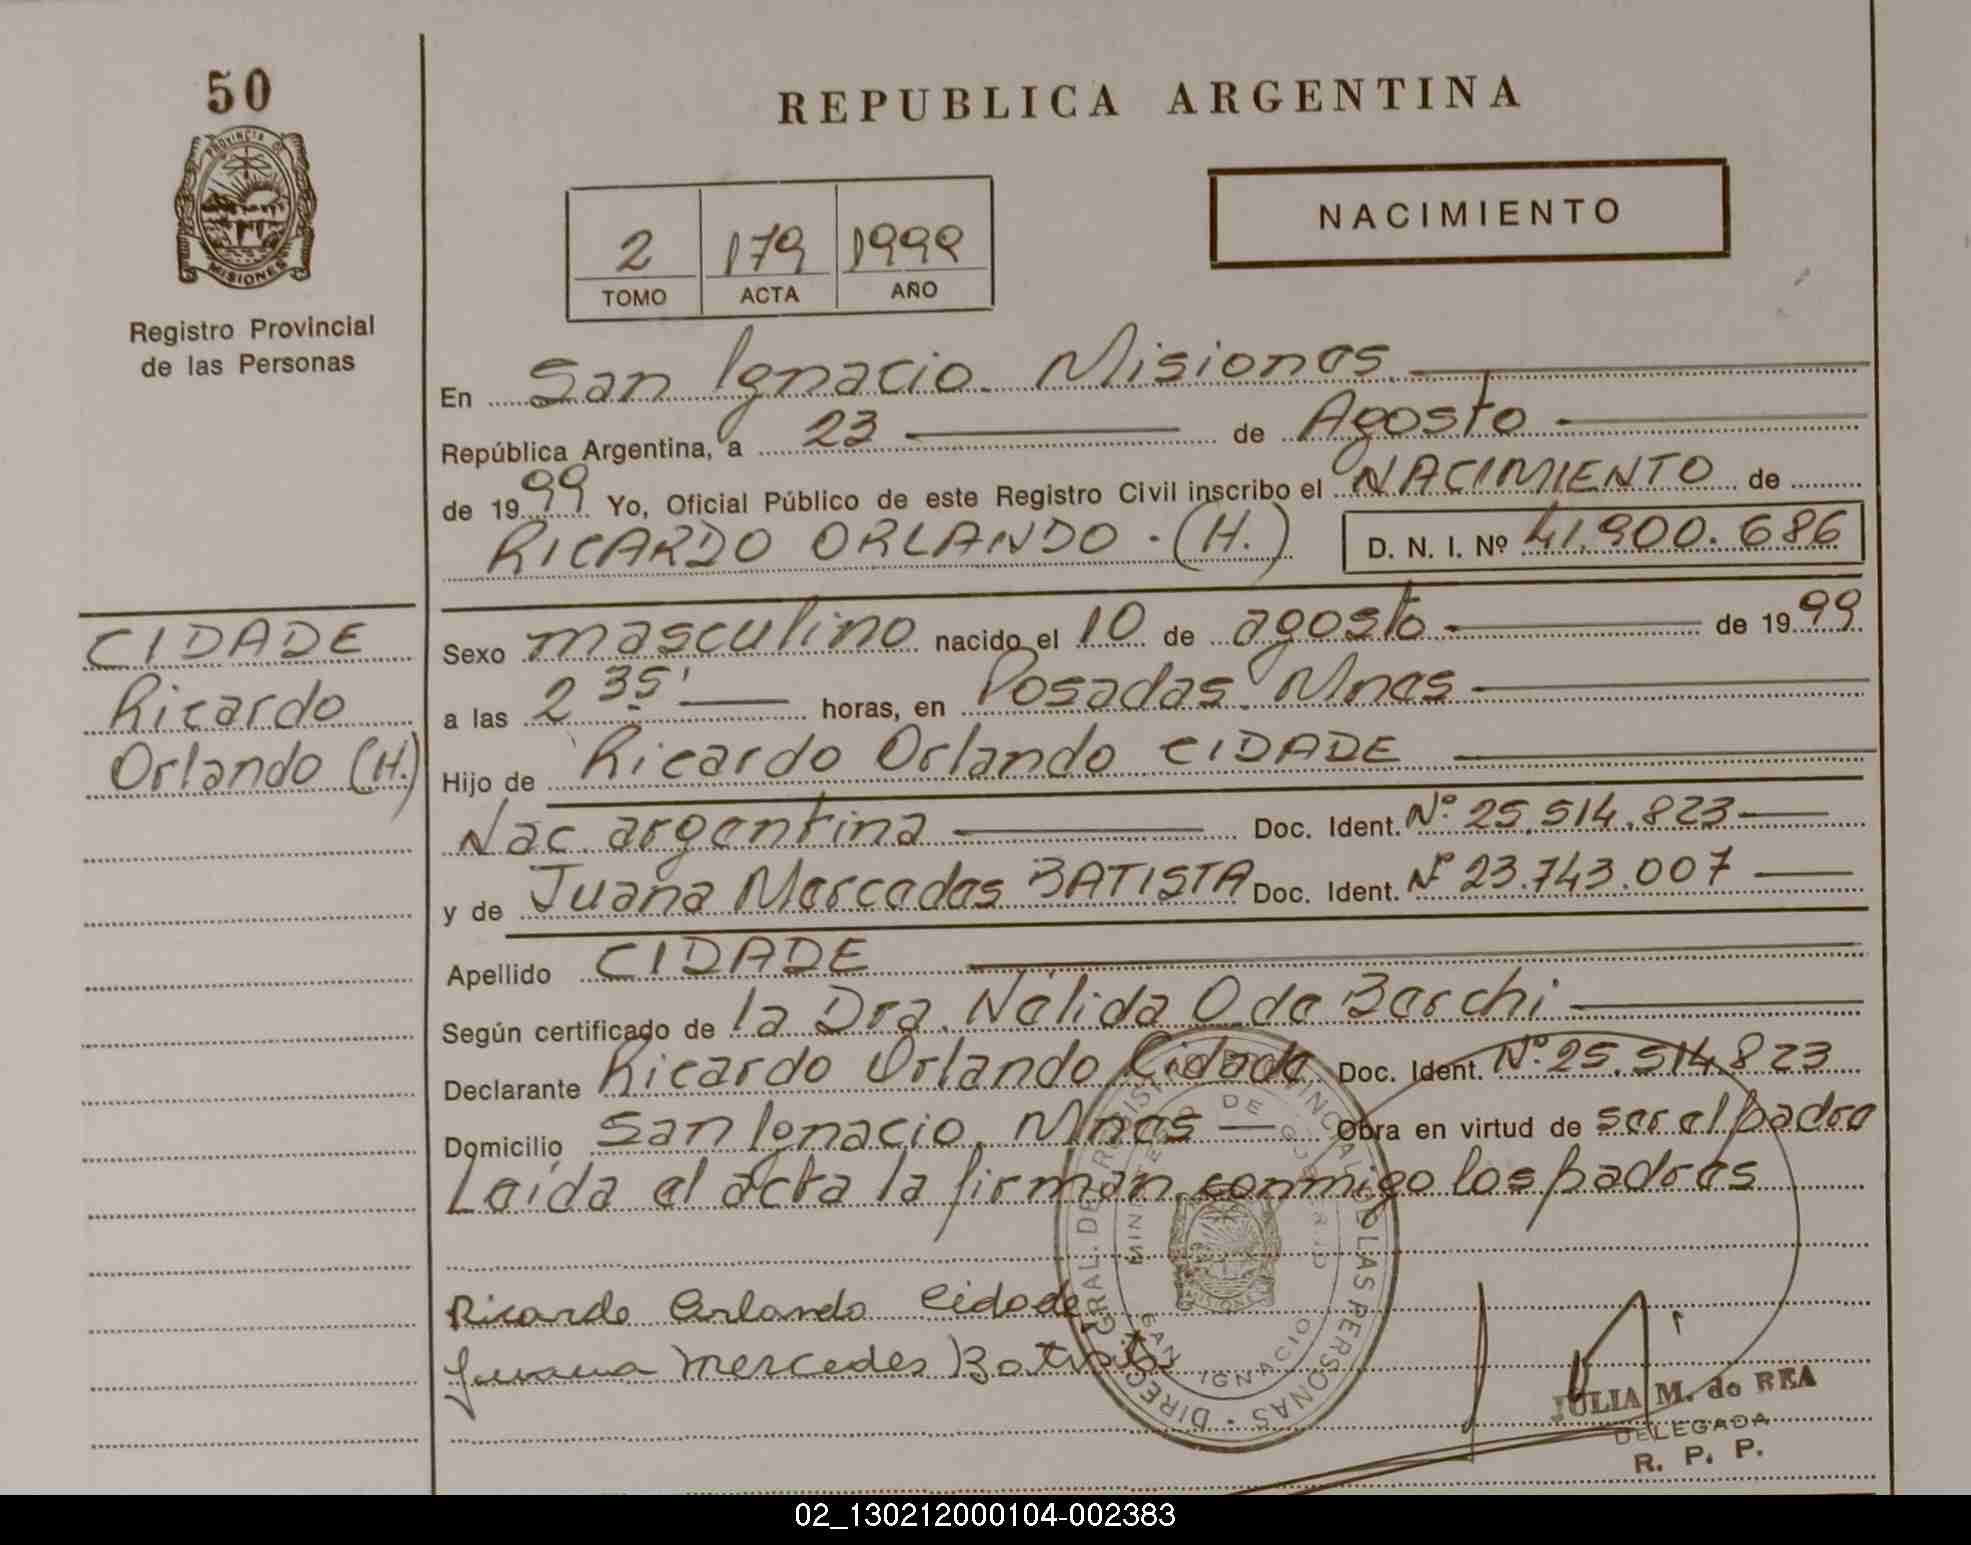 50
PROVINCIA DE
MISIONES
Registro Provincial
de las Personas
REPUBLICA ARGENTINA
NACIMIENTO
2 179 1999
TOMO ACTA AÑO
En San Ignacio. Misiones
República Argentina, a 23 de Agosto
de 1999 Yo, Oficial Público de este Registro Civil inscribo el NACIMIENTO de
RICARDO ORLANDO . (H.) D. N. I. Nº 41.900.686
CIDADE
Ricardo
Orlando (H.)
Sexo masculino nacido el 10 de agosto de 1999
a las 2 35' horas, en Posadas. Mnes
Hijo de Ricardo Orlando CIDADE
Nac. argentina Doc. Ident. Nº 25.514.823
y de Juana Mercedes BATISTA Doc. Ident. Nº 23.743.007
Apellido CIDADE
Según certificado de la Dra. Nélida O. de Berchi
Declarante Ricardo Orlando Cidade Doc. Ident. Nº 25.514.823
Domicilio San Ignacio. Mnes Obra en virtud de ser el padre
Leída el acta la firman conmigo los padres
Ricardo Orlando Cidade
Juana Mercedes Batista
SAN IGNACIO
JULIA M. de REA
DELEGADA
R. P. P.
02_130212000104-002383